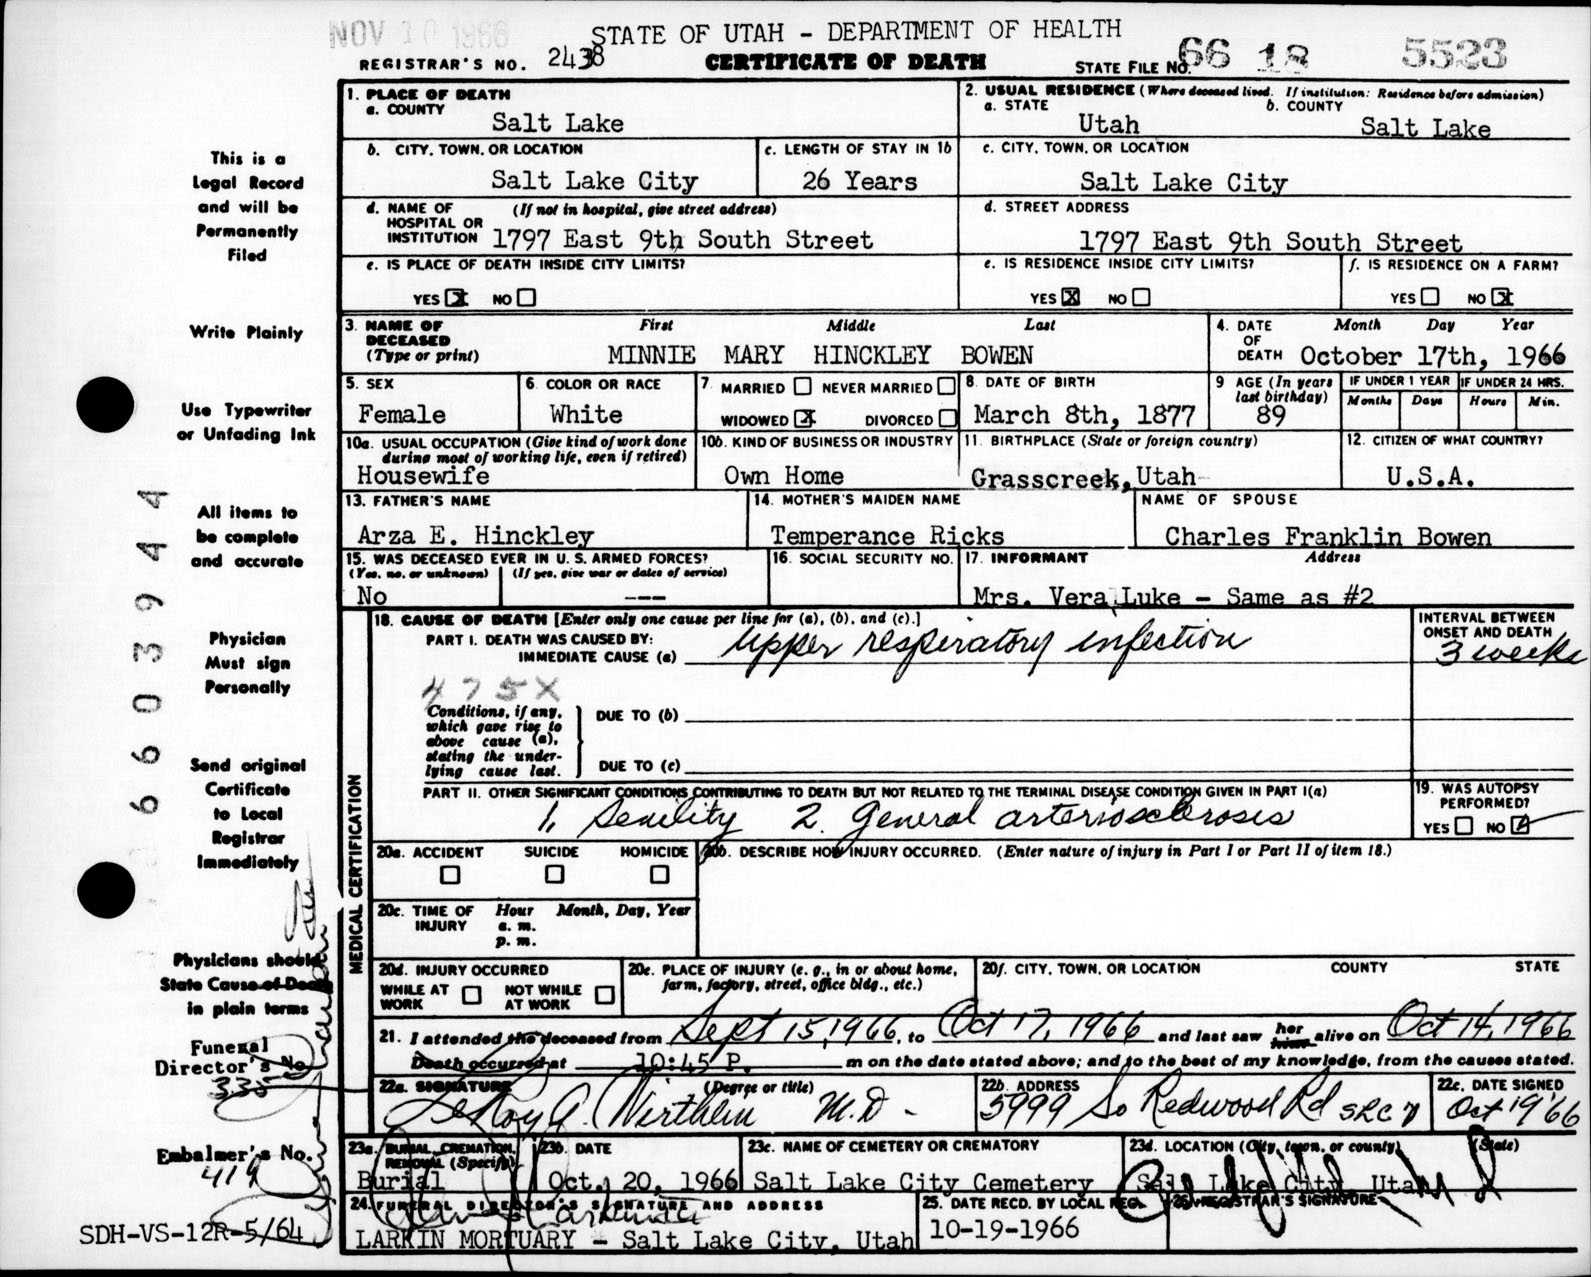 NOV 10 1966
STATE OF UTAH - DEPARTMENT OF HEALTH
REGISTRAR'S NO. 2438 CERTIFICATE OF DEATH STATE FILE NO. 66 18 5523
1. PLACE OF DEATH
a. COUNTY
Salt Lake
2. USUAL RESIDENCE (Where deceased lived. If institution: Residence before admission)
a. STATE b. COUNTY
Utah Salt Lake
b. CITY, TOWN, OR LOCATION
Salt Lake City
c. LENGTH OF STAY IN 1b
26 Years
c. CITY, TOWN, OR LOCATION
Salt Lake City
d. NAME OF HOSPITAL OR INSTITUTION (If not in hospital, give street address)
1797 East 9th South Street
d. STREET ADDRESS
1797 East 9th South Street
e. IS PLACE OF DEATH INSIDE CITY LIMITS?
YES X NO
e. IS RESIDENCE INSIDE CITY LIMITS?
YES X NO
f. IS RESIDENCE ON A FARM?
YES NO X
3. NAME OF DECEASED (Type or print) First Middle Last
MINNIE MARY HINCKLEY BOWEN
4. DATE OF DEATH Month Day Year
October 17th, 1966
5. SEX
Female
6. COLOR OR RACE
White
7. MARRIED NEVER MARRIED
WIDOWED X DIVORCED
8. DATE OF BIRTH
March 8th, 1877
9 AGE (In years last birthday)
89
IF UNDER 1 YEAR IF UNDER 24 HRS.
Months Days Hours Min.
10a. USUAL OCCUPATION (Give kind of work done during most of working life, even if retired)
Housewife
10b. KIND OF BUSINESS OR INDUSTRY
Own Home
11. BIRTHPLACE (State or foreign country)
Grasscreek, Utah
12. CITIZEN OF WHAT COUNTRY?
U.S.A.
13. FATHER'S NAME
Arza E. Hinckley
14. MOTHER'S MAIDEN NAME
Temperance Ricks
NAME OF SPOUSE
Charles Franklin Bowen
15. WAS DECEASED EVER IN U. S. ARMED FORCES?
(Yes, no, or unknown) (If yes, give war or dates of service)
No ---
16. SOCIAL SECURITY NO.
17. INFORMANT Address
Mrs. Vera Luke - Same as #2
18. CAUSE OF DEATH [Enter only one cause per line for (a), (b), and (c).]
PART I. DEATH WAS CAUSED BY:
IMMEDIATE CAUSE (a) Upper respiratory infection
INTERVAL BETWEEN ONSET AND DEATH
3 weeks
475X
Conditions, if any, which gave rise to above cause (a), stating the underlying cause last.
DUE TO (b)
DUE TO (c)
PART II. OTHER SIGNIFICANT CONDITIONS CONTRIBUTING TO DEATH BUT NOT RELATED TO THE TERMINAL DISEASE CONDITION GIVEN IN PART I(a)
1. Senility 2. General arteriosclerosis
19. WAS AUTOPSY PERFORMED?
YES NO
MEDICAL CERTIFICATION
20a. ACCIDENT SUICIDE HOMICIDE
20b. DESCRIBE HOW INJURY OCCURRED. (Enter nature of injury in Part I or Part II of item 18.)
20c. TIME OF INJURY Hour a. m. p. m. Month, Day, Year
20d. INJURY OCCURRED
WHILE AT WORK NOT WHILE AT WORK
20e. PLACE OF INJURY (e. g., in or about home, farm, factory, street, office bldg., etc.)
20f. CITY, TOWN, OR LOCATION COUNTY STATE
21. I attended the deceased from Sept 15, 1966, to Oct 17, 1966 and last saw her him alive on Oct 14, 1966
Death occurred at 10:45 P. m on the date stated above; and to the best of my knowledge, from the causes stated.
22a. SIGNATURE (Degree or title)
LeRoy A. Wirthlin M.D.
22b. ADDRESS
5999 So Redwood Rd SLC
22c. DATE SIGNED
Oct 19 '66
23a. BURIAL, CREMATION, REMOVAL (Specify)
Burial
23b. DATE
Oct. 20, 1966
23c. NAME OF CEMETERY OR CREMATORY
Salt Lake City Cemetery
23d. LOCATION (City, town, or county) (State)
Salt Lake City, Utah
24. FUNERAL DIRECTOR'S SIGNATURE AND ADDRESS
LARKIN MORTUARY - Salt Lake City, Utah
25. DATE RECD. BY LOCAL REG.
10-19-1966
26. REGISTRAR'S SIGNATURE
This is a
Legal Record
and will be
Permanently
Filed
Write Plainly
Use Typewriter
or Unfading Ink
All items to
be complete
and accurate
Physician
Must sign
Personally
Send original
Certificate
to Local
Registrar
Immediately
Physicians should
State Cause of Death
in plain terms
Funeral
Director's No.
Embalmer's No.
419
SDH-VS-12R-5/64
6603944